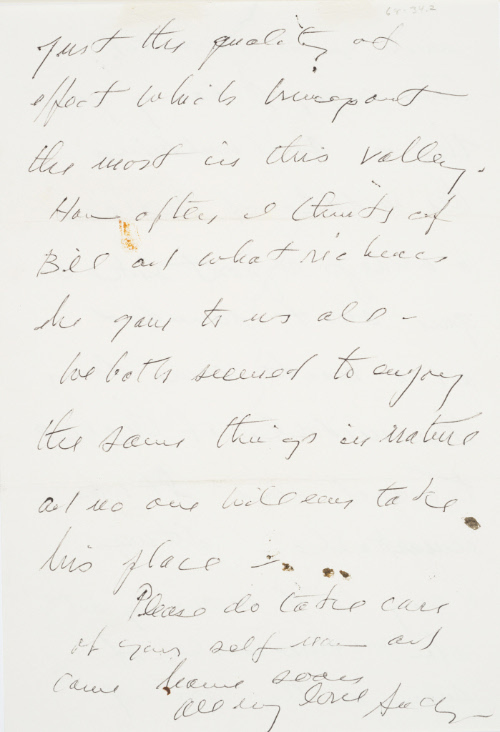 just the quality of
effect which
the most in this valley.
How often I think of
Bill and what richness
he gave to us all -
We both seemed to enjoy
the same things in nature
and no one will ever take
his place
Please do take care
of your self now and
come home soon
all my love